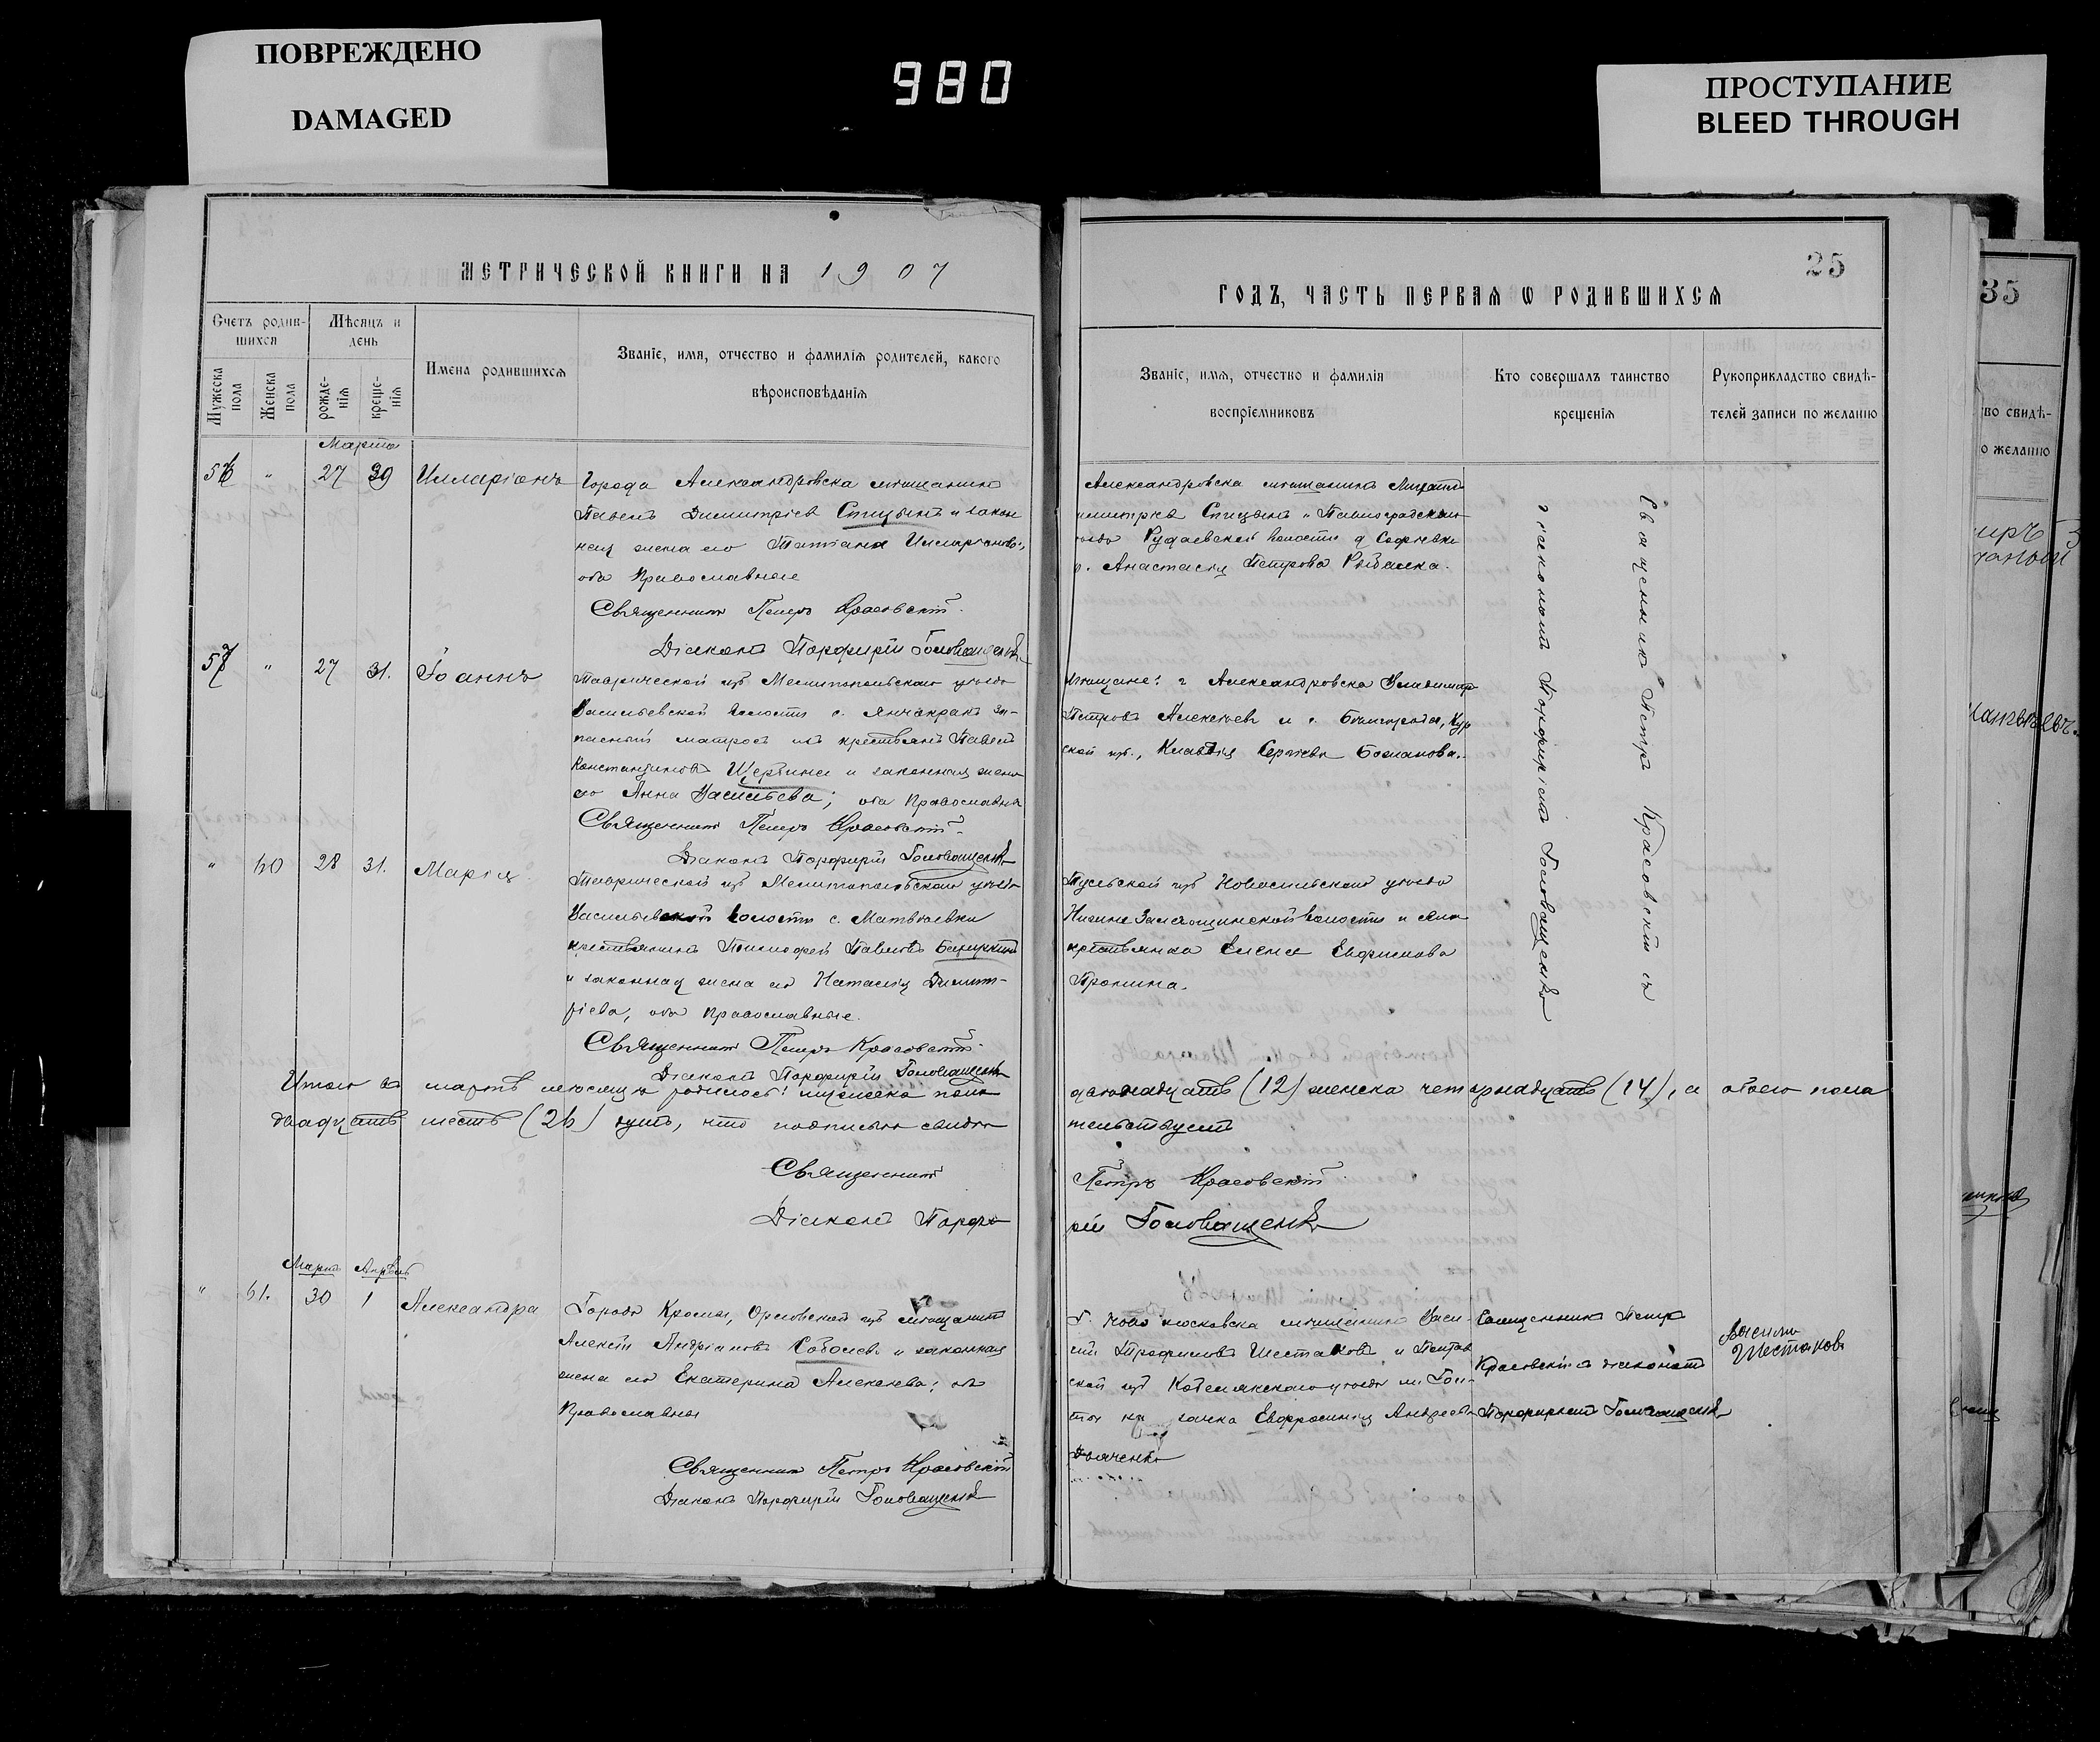 ПОВРЕЖДЕНО
DAMAGED
980
ПРОСТУПАНИЕ
BLEED THROUGH
МЕТРИЧЕСКОЙ КНИГИ НА 1907
Счетъ родив-
шихся
Мѣсяцъ и
день
Имена родившихся
Званіе, имя, отчество и фамилія родителей, какого
вѣроисповѣданія
Мужеска пола
Женска пола
рожде-
нія
креще-
нія
Марта
56 " 27 30 Илларіонъ
Города Александровска мѣщанинъ
Павелъ Димитріевъ Спицынъ и закон
ная жена его Татіана Илларіонова,
оба Православные
Священникъ Петръ Красовскій
Діаконъ Порфирій Головащенко
57 " 27 31. Іоаннъ
Таврической губ Мелитопольскаго уѣзда
Васильевской волости с. Янчокракъ за-
пасный матросъ изъ крестьянъ Павелъ
Константиновъ Щербина и законная жена
его Анна Васильева; оба Православные
Священникъ Петръ Красовскій
Діаконъ Порфирій Головащенко
" 60 28 31. Марія
Таврической губ Мелитопольскаго уѣзда
Васильевской волости с. Матвѣевки
крестьянинъ Тимофей Павловъ
и законная жена его Наталія Димит-
ріева, оба православные.
Священникъ Петръ Красовскій
Діаконъ Порфирій Головащенко
Итого въ мартѣ мѣсяцѣ родилось: мужеска пола
двадцать шесть (26) душъ, что подписью свидѣ
Священникъ
Діаконъ Порфи
Мартъ Апрѣль
" 61. 30 1 Александра
Города Кромы, Орловской губ мѣщанинъ
Алексѣй Андріановъ Соболевъ и законная
жена его Екатерина Алексѣева; оба
Православные
Священникъ Петръ Красовскій
Діаконъ Порфирій Головащенко
25
ГОДЪ, ЧАСТЬ ПЕРВАЯ Ѡ РОДИВШИХСЯ
Званіе, имя, отчество и фамилія
воспріемниковъ
Кто совершалъ таинство
крещенія
Рукоприкладство свидѣ-
телей записи по желанію
Александровска мѣщанинъ Михаилъ
имитріевъ Спицынъ и Павлоградскаго
уѣзда волости д Софіевки
Анастасія Петрова Рыбалка.
мѣщане: г Александровска Владиміръ
Петровъ Алексѣевъ и г. Бѣлгорода, Кур
ской губ., Клавдія Сергѣева Богданова.
Тульской губ Новосильскаго уѣзда
волости и села
крестьянка Елена Евфимова
Пронина.
Священникъ Петръ Красовскій съ
діакономъ Порфиріемъ Головащенко
двѣнадцать (12) женска четырнадцать (14), а обоего пола
тельствуетъ
Петръ Красовскій
рій Головащенко
Г. Ново московска мѣщанинъ Васи-
лій Трофимовъ Шестаковъ и Полтав
ской губ Кобелякскаго уѣзда м.
Евфросинія Андреева
Дьяченко
Священникъ Петръ
Красовскій съ діакономъ
Порфиріемъ Головащенко
Василій
Шестаковъ
35
во свидѣ-
о желанію